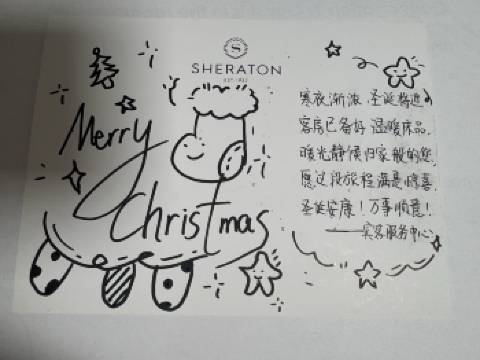 SHERATON
Merry
Christmas
寒衣渐浓,圣诞将近
客房已备好温暖床品
暖光静候归家般的您
愿这段旅程满是惊喜
圣诞安康!万事顺意!
——宾客服务中心